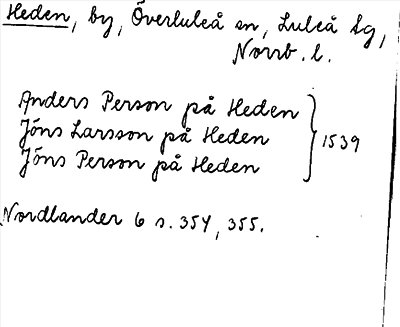 Heden, by, Överluleå sn, Luleå tg,
Norrb. l.
Anders Person på Heden
Jöns Larsson på Heden
Jöns Person på Heden
1539
Nordlander 6 s. 354, 355.